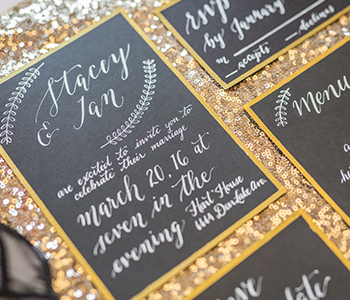 Stacey
& Ian
are excited to invite you to
celebrate their marriage
march 20, 16 at
seven in the
evening
Hart House
rsvp
by January
accepts
declines
Menu
Save
date